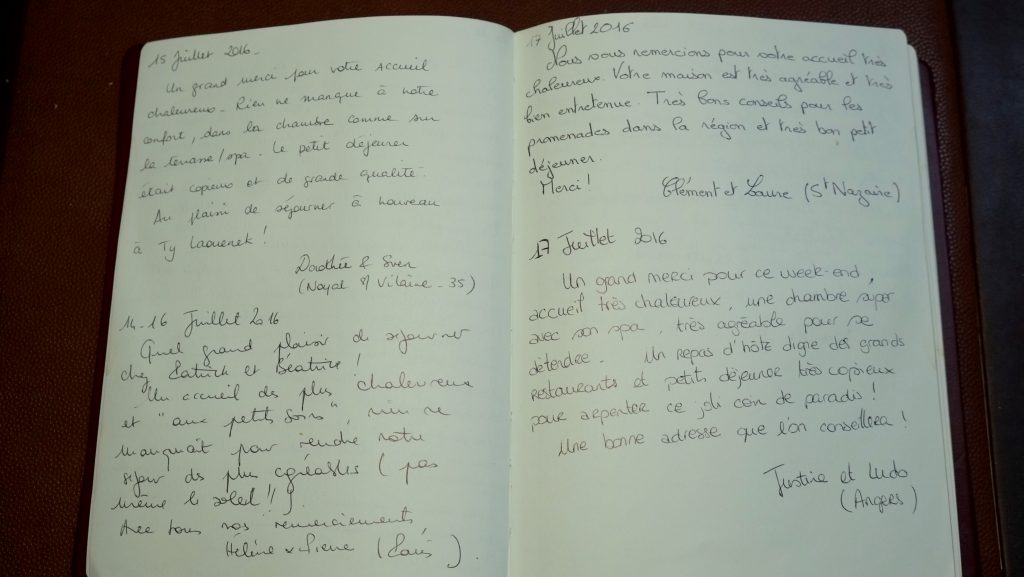 15 Juillet 2016 -
Un grand merci pour votre accueil
chaleureux - Rien ne manque à notre
confort, dans la chambre comme sur
la terrasse/spa. Le petit déjeuner
était copieux et de grande qualité.
Au plaisir de séjourner à nouveau
à Ty Laouenek !
Dorothée & Sven
(Noyal s/ Vilaine - 35)
14-16 Juillet 2016
Quel grand plaisir de séjourner
chez Patrick et Béatrice !
Un accueil des plus chaleureux
et "aux petits soins", rien ne
manquait pour rendre notre
séjour des plus agréables (pas
même le soleil !!).
Avec tous nos remerciements,
Hélène & Pierre (Paris).
17 Juillet 2016
Nous vous remercions pour votre accueil très
chaleureux. Votre maison est très agréable et très
bien entretenue. Très bons conseils pour les
promenades dans la région et très bon petit
déjeuner.
Merci !
Clément et Laure (St Nazaire)
17 Juillet 2016
Un grand merci pour ce week-end,
accueil très chaleureux, une chambre super
avec son spa, très agréable pour se
détendre. Un repas d'hôte digne des grands
restaurants et petits déjeuner très copieux
pour arpenter ce joli coin de paradis !
Une bonne adresse que l'on conseillera !
Justine et Ludo
(Angers)